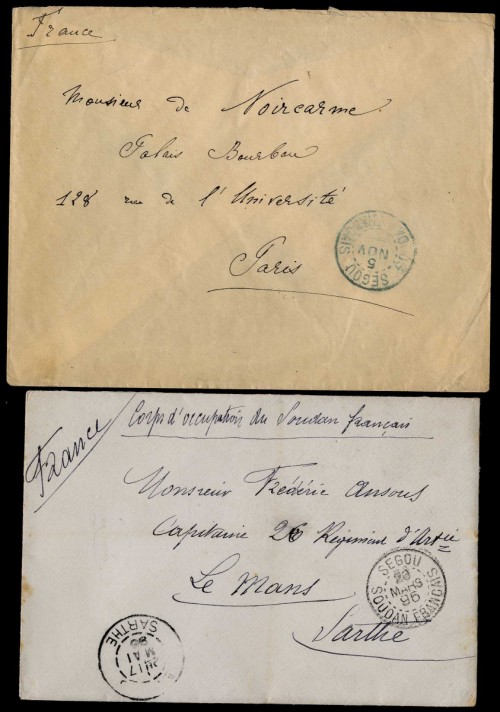 France
Monsieur de Noircarme
Palais Bourbon
128 rue de l'Université
Paris
SEGOU
5
NOV
France
Corps d'occupation du Soudan français
Monsieur Frédéric Ansous
Capitaine 26 Régiment d'Artie
Le Mans
Sarthe
SEGOU
MARS
96
SOUDAN FRANCAIS
17
MAI
96
SARTHE